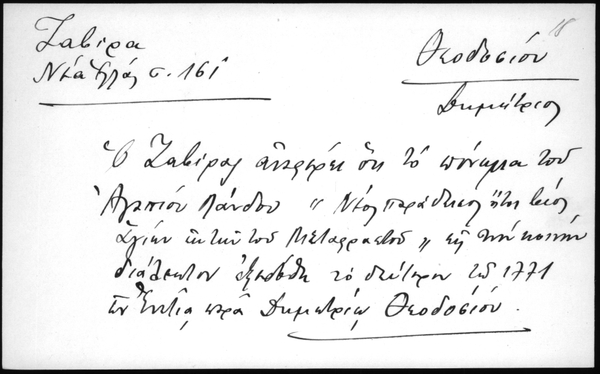 Ζαβίρα
Νέα Ἑλλάς σ. 161
18
Θεοδοσίου
Δημήτριος
Ὁ Ζαβίρας ἀναφέρει ὅτι τὸ πόνημα τοῦ
Ἀγαπίου Λάνδου „ Νέος παράδεισος ἤτοι βίος
Ἁγίων ἐκ τῶν τοῦ Μεταφραστοῦ „ εἰς τὴν κοινὴν
διάλεκτον ἐξεδόθη τὸ δεύτερον τῷ 1771
ἐν Ἐνετίᾳ παρὰ Δημητρίῳ Θεοδοσίου.